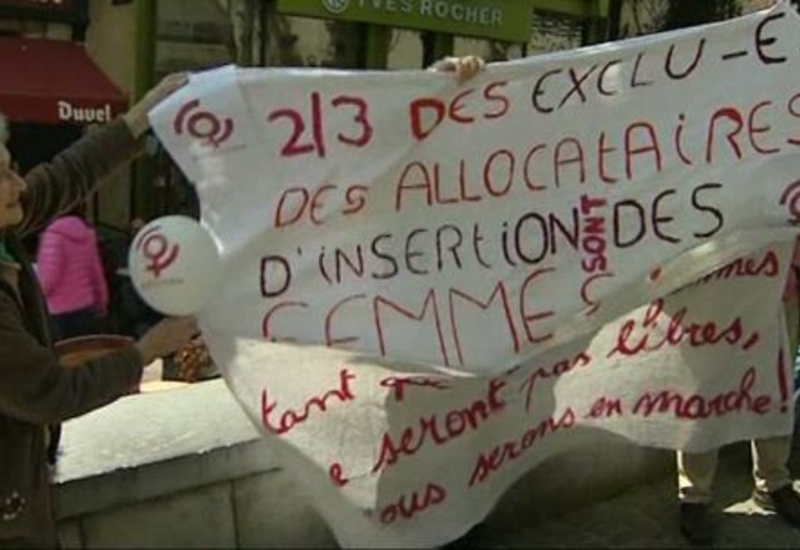 YVES ROCHER
Duvel
2/3 DES EXCLU-E
DES ALLOCATAIRES
D'INSERTION SONT DES
FEMMES
tant que
e seront pas libres,
ous serons en marche!